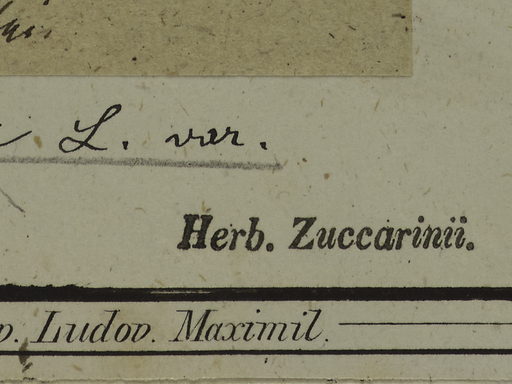 L. var.
Herb. Zuccarinii.
Ludov. Maximil.